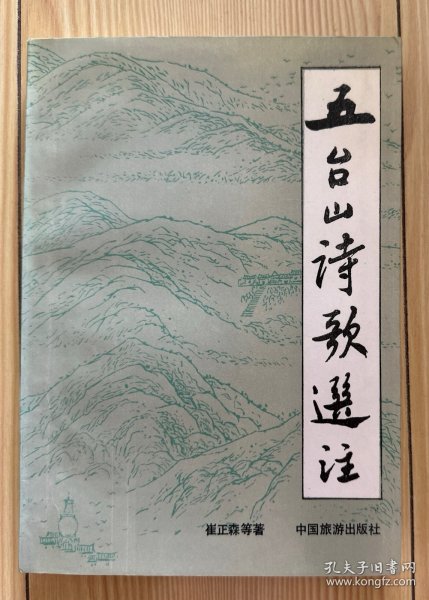 五台山诗歌選注
崔正森等著 中国旅游出版社
孔夫子旧书网
www.kongfz.com